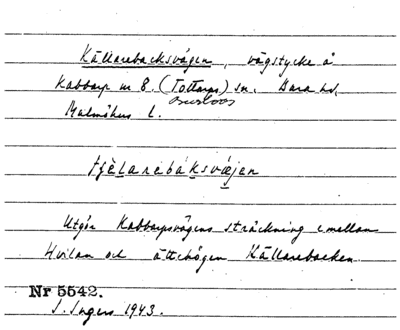 Källarebacksvägen, vägstycke å
Kabbarp nr 8. (Tottarps) sn. Bara hd,
Burlövs
Malmöhus l.
tjèlarebáksvæjen
Utgör Kabbarpsvägens sträckning emellan
Hvilan och ättehögen Källarebacken.
Nr 5542.
I. Ingers 1943.